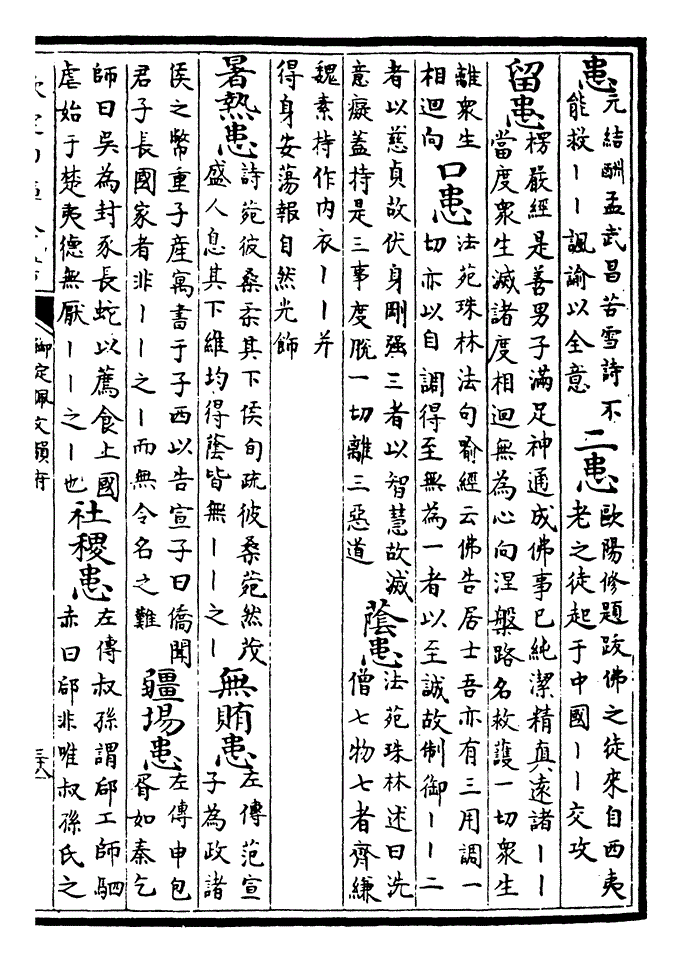 患元結酬孟武昌苦雪詩不
能救丨丨諷諭以全意
二患歐陽修題跋佛之徒來自西夷
老之徒起于中國丨丨交攻
留患楞嚴經是善男子滿足神通成佛事已純潔精真遠諸丨丨
當度衆生滅諸度相迴無為心向涅槃路名救護一切衆生
離衆生
相迴向
口患法苑珠林法句喻經云佛告居士吾亦有三用調一
切亦以自調得至無為一者以至誠故制御丨丨二
者以慈貞故伏身剛强三者以智慧故滅
意癡蓋持是三事度脫一切離三惡道
蔭患法苑珠林述曰洗
僧七物七者齊縑
魏素持作内衣丨丨并
得身安蕩報自然光飾
暑熱患詩菀彼桑柔其下侯旬疏彼桑菀然茂
盛人息其下維均得蔭皆無丨丨之丨
無賄患左傳范宣
子為政諸
侯之幣重子產寓書于子西以告宣子曰僑聞
君子長國家者非丨丨之丨而無令名之難
疆埸患左傳申包
胥如秦乞
師曰吳為封豕長蛇以薦食上國
虐始于楚夷德無厭丨丨之丨也
社稷患左傳叔孫謂郈工師駟
赤曰郈非唯叔孫氏之
御定佩文韻府